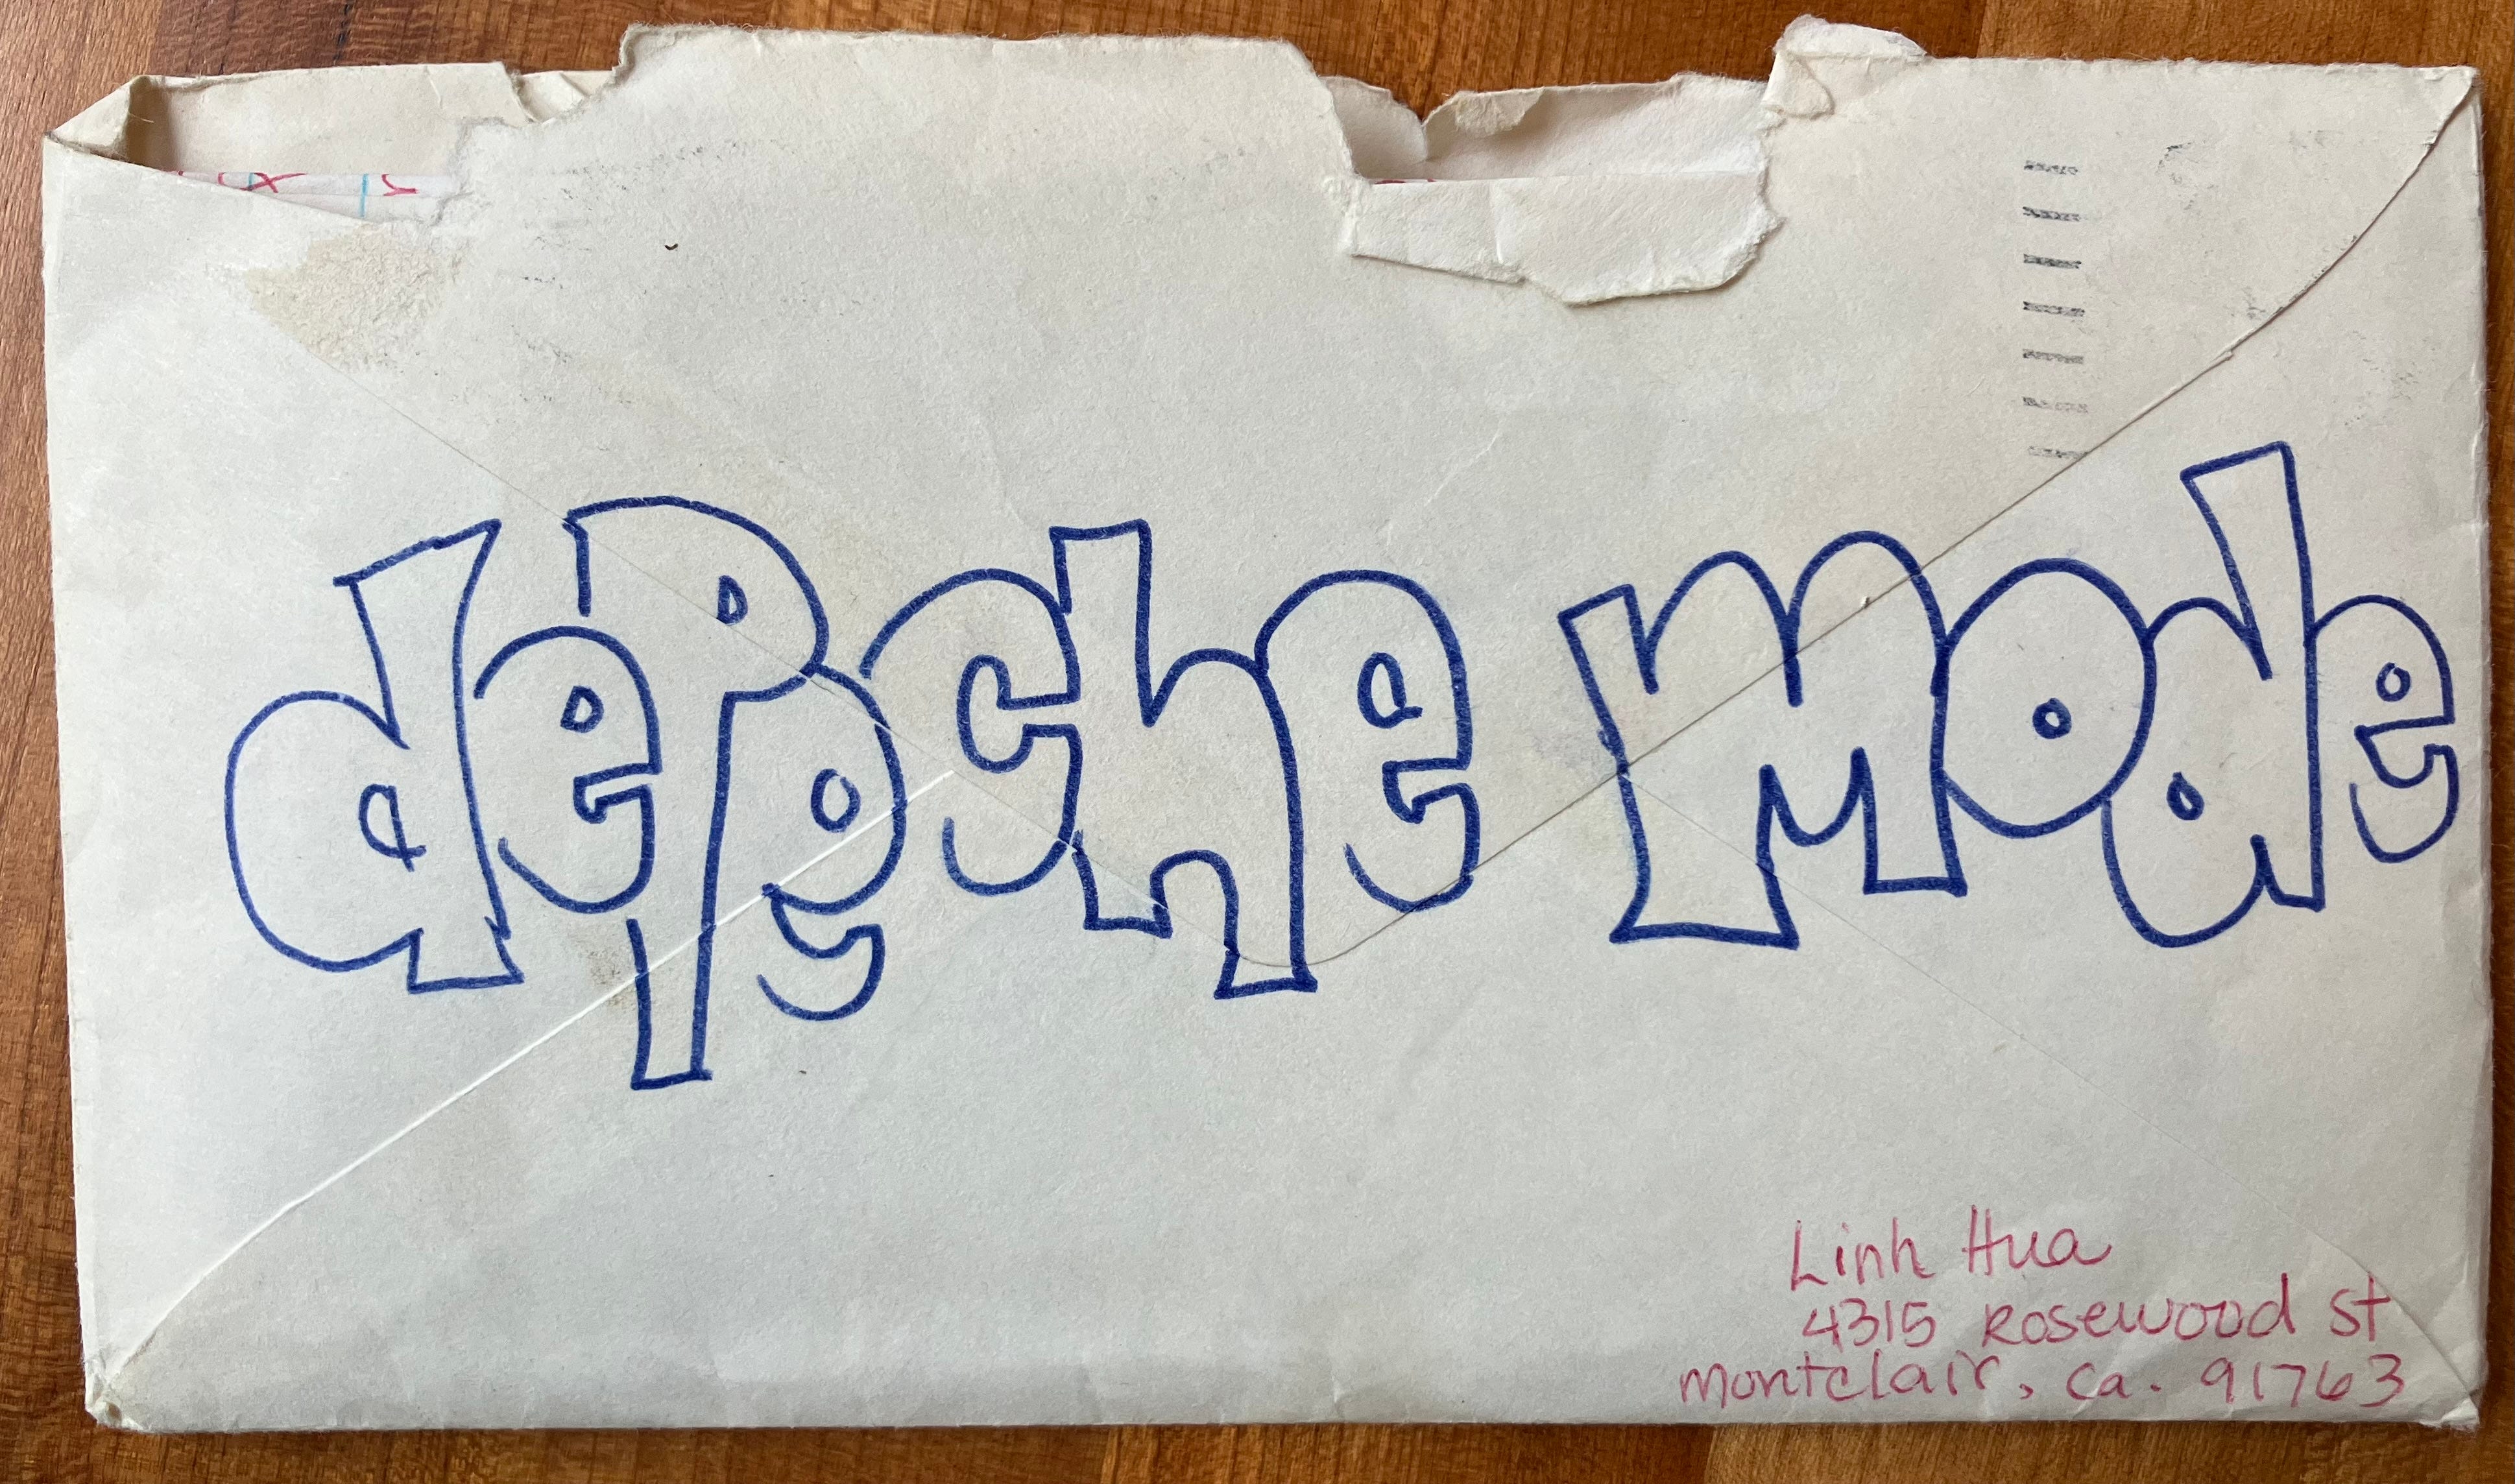 depeche mode
Linh Hua
4315 Rosewood St
Montclair, Ca. 91763